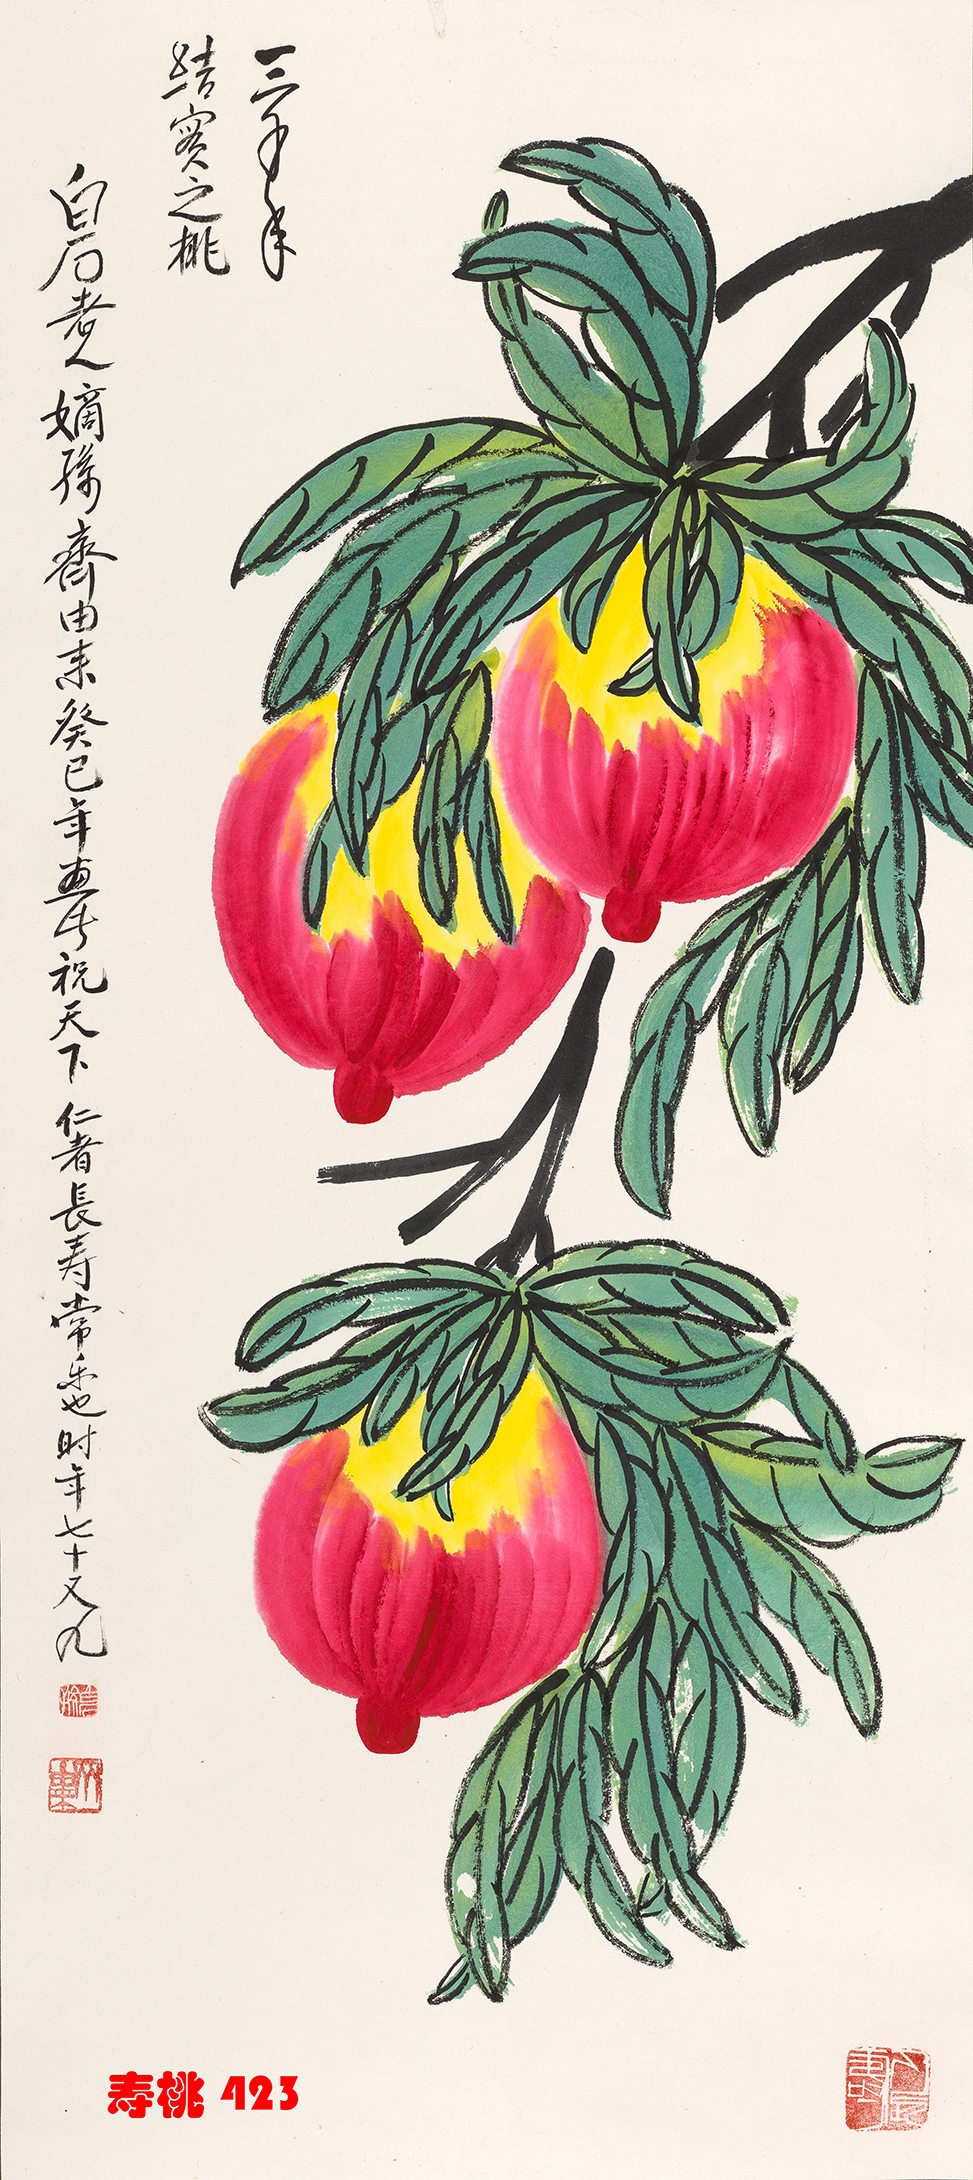 三千年
结实之桃
白石老人嫡孙齐由来癸巳年画此祝天下仁者長寿常乐也时年七十又九
寿桃 423